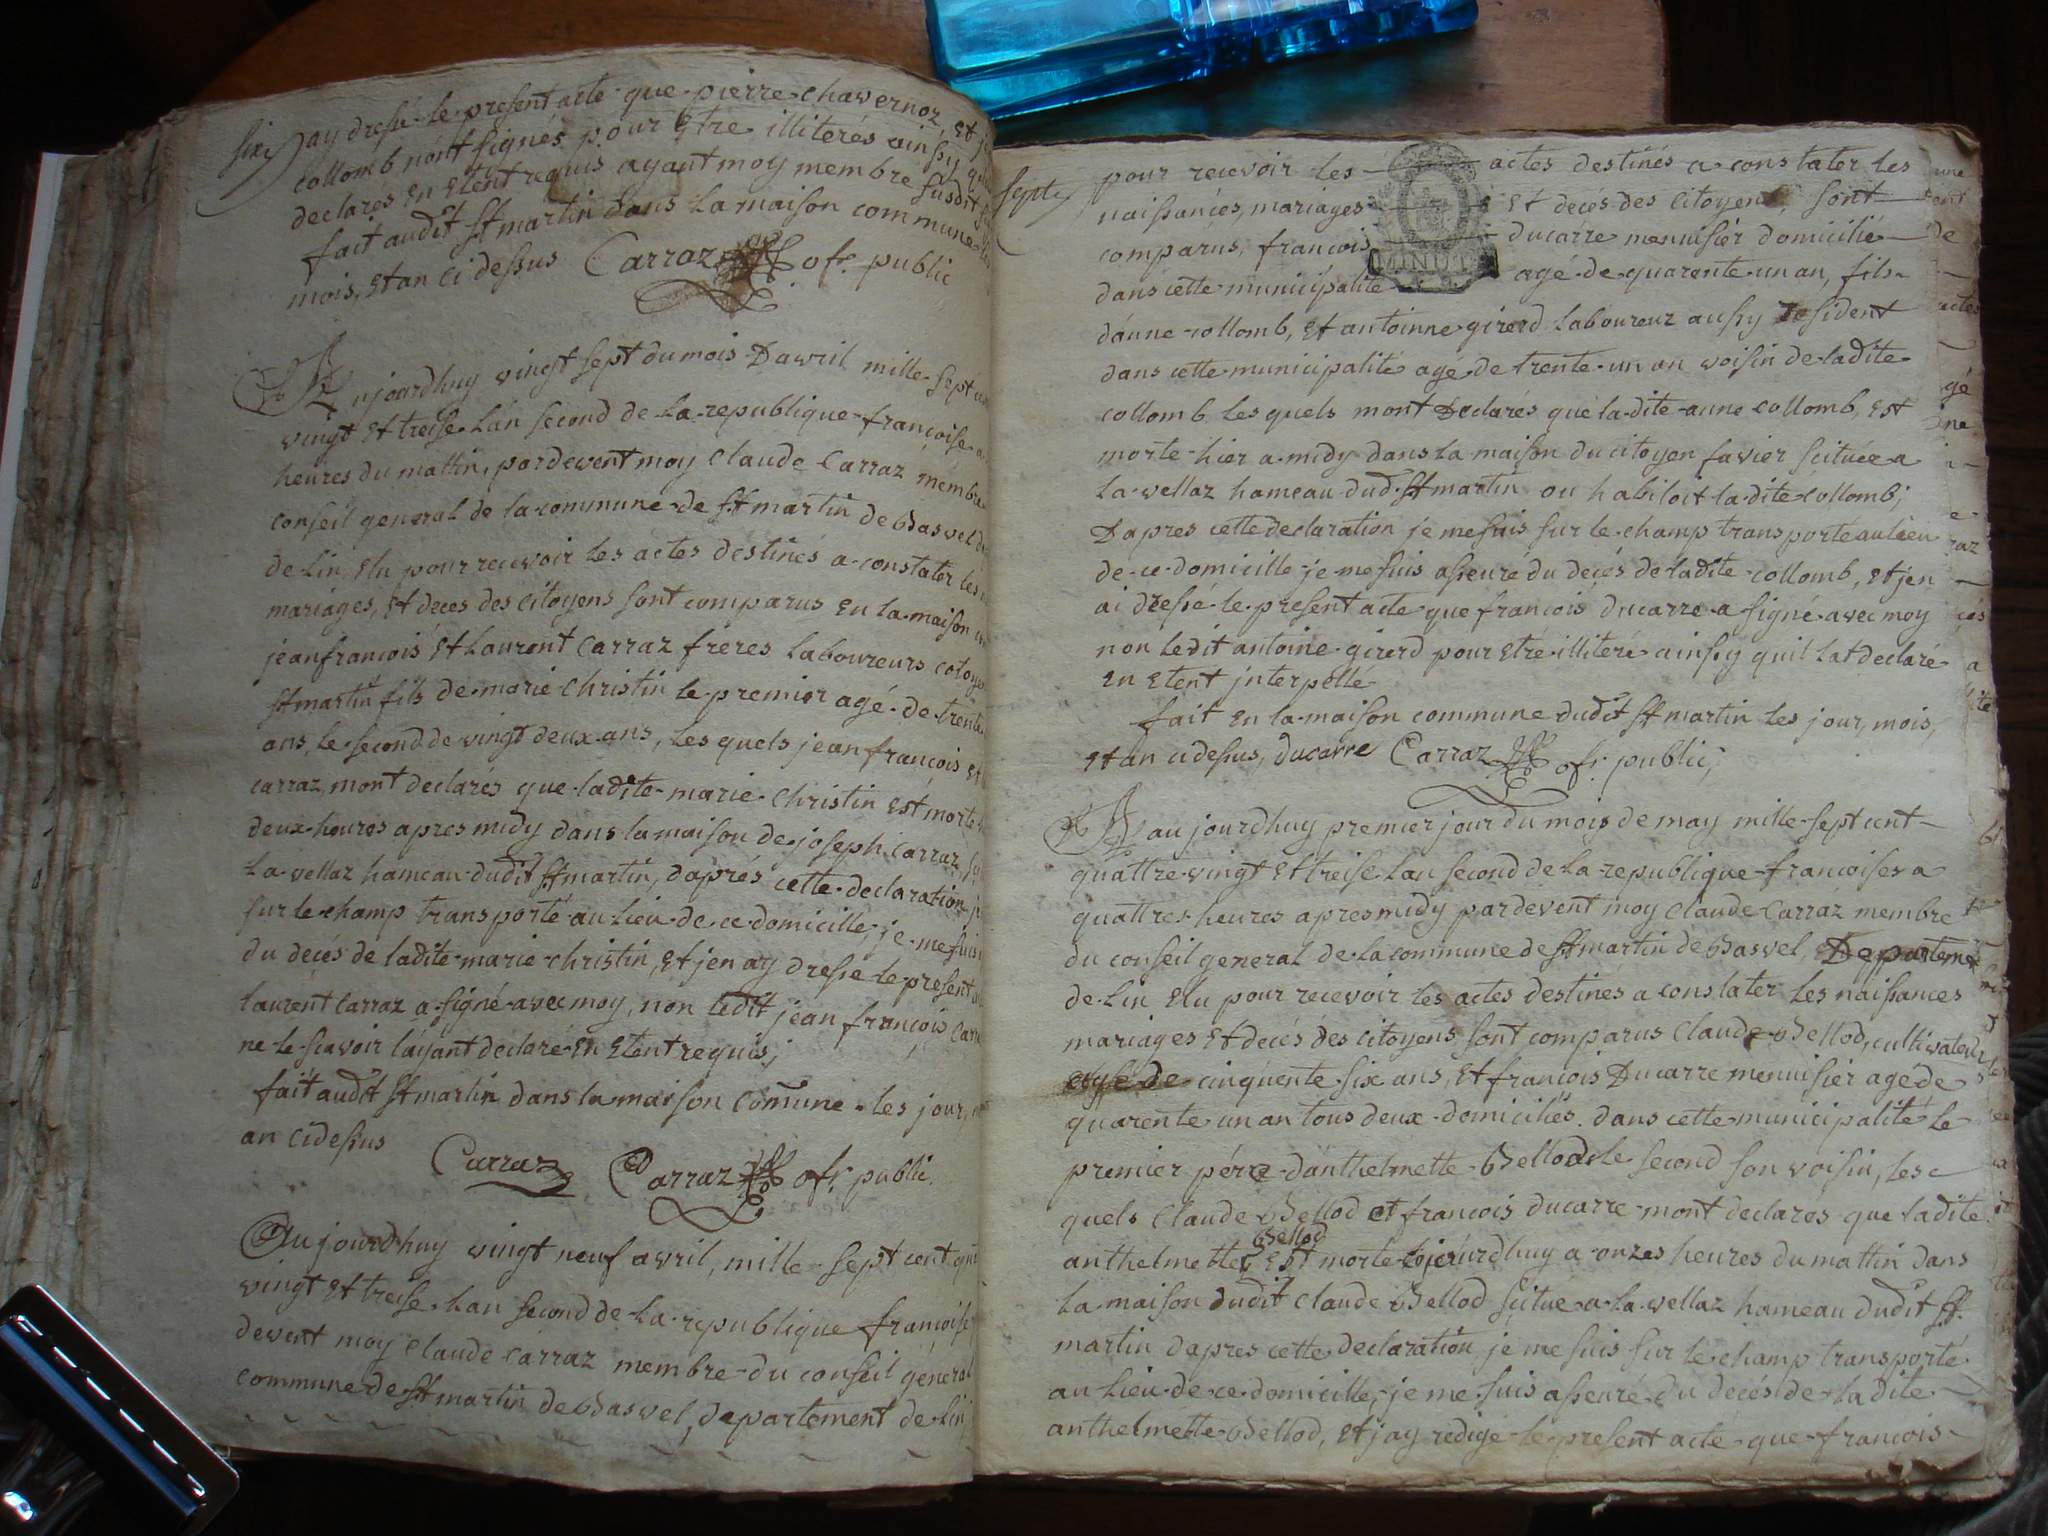 six
ay dressé le present acte que pierre chavernoz, et
collomb nont signés pour etre illiterés ainsy
declarés en etent requis ayant moy membre susdit
fait audit st martin dans la maison commune
mois, et an ci dessus Carraz ofr. public
Aujourdhuy vingt sept du mois Davril mille sept
vingt et treise lan second de la republique françoise
heures du mattin, pardevent moy Claude Carraz membre
conseil general de la commune de st martin de Basvel
de lin elu pour recevoir les actes destinés a constater les
mariages, et deces des citoyens sont comparus en la maison
jeanfrancois et Laurent Carraz freres laboureurs
st martin fils de marie Christin le premier agé de trente
ans, le second de vingt deux ans, les quels jean françois et
carraz mont declarés que ladite marie Christin est morte
deux heures apres midy dans la maison de joseph Carraz
la vellaz hameau dudit st martin, daprés cette declaration
sur le champ transporté au lieu de ce domicille, je me suis
du decés de ladite marie christin, et jen ay dresse le present
laurent Carraz a signé avec moy, non ledit jean françois
ne le scavoir layant declaré en etent requis;
fait audit st martin dans la maison comune les jour,
an cidessus
Carraz Carraz ofr. public.
Aujourdhuy vingt neuf avril, mille sept cent
vingt et treise lan second de la republique françoise
devent moy Claude Carraz membre du conseil general
commune de st martin de Basvel, departement de lin
sept
pour recevoir les actes destinés a constater les
naissances, mariages et decés des citoyens, sont
comparus, francois ducarre menuisier domicilié
MINUTE
dans cette municipalité agé de quarente un an, fils
danne collomb, et antoinne girerd laboureur aussy resident
dans cette municipalité agé de trente un an voisin de ladite
collomb les quels mont declarés que ladite anne collomb, est
morte hier a midy dans la maison du citoyen favier scituée a
la vellaz hameau dud. st martin ou habitoit la dite collomb;
Dapres cette declaration je me suis sur le champ transporté au lieu
de ce domicille je me suis asseuré du decés de ladite collomb, et jen
ai dressé le present acte que francois ducarre a signé avec moy
non ledit antoine girerd pour etre illiteré ainsy quil lat declaré
en etent interpellé
fait en la maison commune dudit st martin les jour, mois,
et an cidessus, ducarre Carraz ofr. public;
aujourdhuy premier jour du mois de may mille sept cent
quattre vingt et treise lan second de la republique francoises a
quattres heures apres midy pardevent moy Claude Carraz membre
du conseil general de la commune de st martin de Basvel, Departeme
de lin elu pour recevoir les actes destinés a constater les naissances
mariages et decés des citoyens sont comparus Claude Bellod, cultivateur
de cinquente six ans, et francois Ducarre menuisier agé de
quarente un an tous deux domiciliés dans cette municipalité le
premier pére danthelmette Bellod le second son voisin, les
quels Claude Bellod et francois ducarre mont declarés que ladite
Bellod
anthelmette est morte aujourdhuy a onzes heures du mattin dans
la maison dudit Claude Bellod scitue a la vellaz hameau dudit st
martin dapres cette declaration je me suis sur le champ transporté
au lieu de ce domicille, je me suis asseuré du decés de ladite
anthelmette Bellod, et jay redigé le present acte que francois